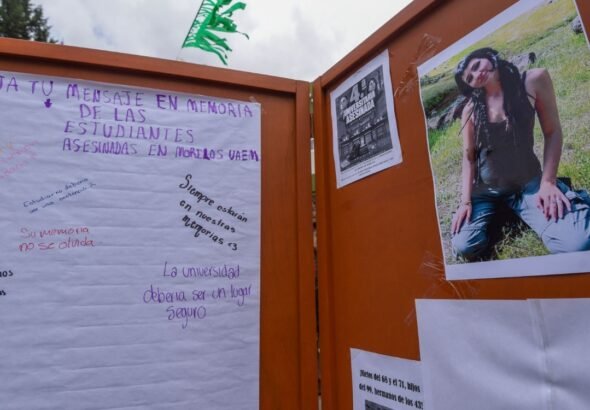 JA TU MENSAJE EN MEMORIA
DE LAS
ESTUDIANTES
ASESINADAS EN MORELOS UAEM
Estudiar no debería
ser una sentencia
Siempre estarán
en nuestras
memorias <3
Su memoria
no se olvida
La universidad
debería ser un lugar
seguro
ASESINADA
¡Nietos del 68 y el 71, hijos
del 99, hermanos de los 43!